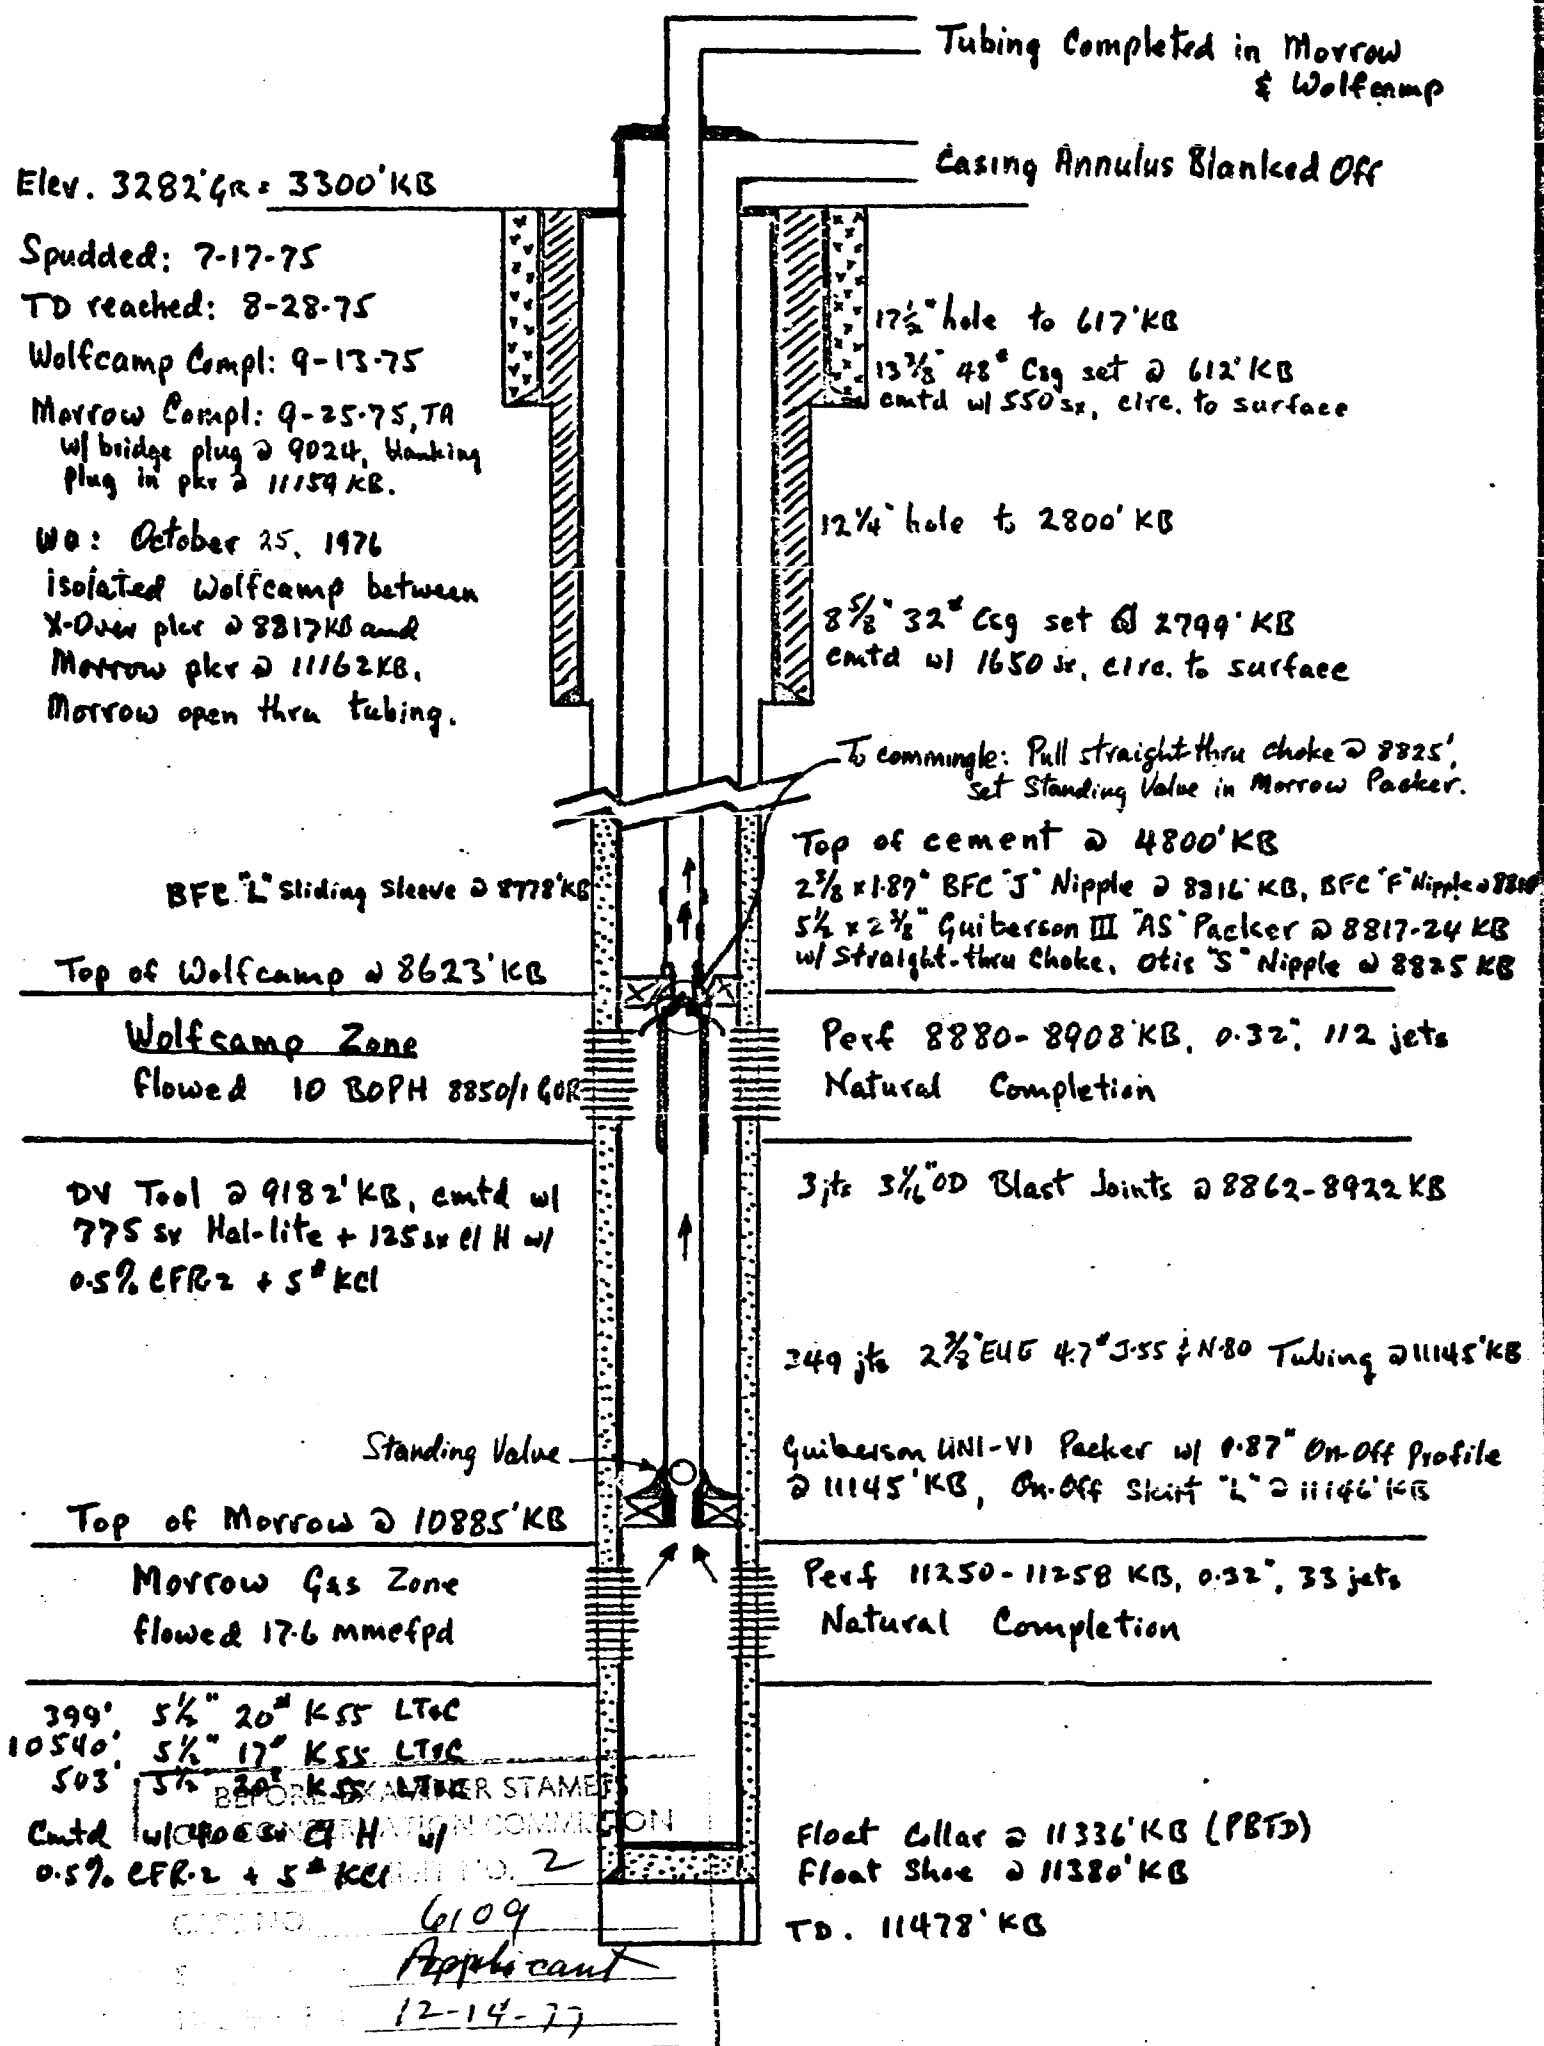 Tubing Completed in Morrow
& Wolfcamp
Casing Annulus Blanked Off
Elev. 3282' GR = 3300' KB
Spudded: 7-17-75
TD reached: 8-28-75
Wolfcamp Compl: 9-13-75
Morrow Compl: 9-25-75, TA
w/ bridge plug @ 9024, blanking
plug in pkr @ 11159 KB.
WO: October 25, 1976
isolated Wolfcamp between
X-Over pkr @ 8817 KB and
Morrow pkr @ 11162 KB.
Morrow open thru tubing.
17½" hole to 617' KB
13⅜" 48# Csg set @ 612' KB
cmtd w/ 550 sx, circ. to surface
12¼" hole to 2800' KB
8⅝" 32# Csg set @ 2799' KB
cmtd w/ 1650 sx, circ. to surface
To commingle: Pull straight-thru choke @ 8825',
set Standing Valve in Morrow Packer.
Top of cement @ 4800' KB
2⅜ x 1.87" BFC "J" Nipple @ 8816' KB, BFC "F" Nipple @
5½ x 2⅜" Guiberson III "AS" Packer @ 8817-24 KB
w/ Straight-thru Choke, Otis "S" Nipple @ 8825 KB
BFC "L" Sliding Sleeve @ 8778' KB
Top of Wolfcamp @ 8623' KB
Wolfcamp Zone
flowed 10 BOPH 8850/1 GOR
Perf 8880-8908' KB, 0.32", 112 jets
Natural Completion
DV Tool @ 9182' KB, cmtd w/
775 sx Hal-lite + 125 sx Cl H w/
0.5% CFR-2 + 5# KCl
3 jts 3 1/16" OD Blast Joints @ 8862-8922 KB
349 jts 2⅜" EUE 4.7# J-55 & N-80 Tubing @ 11145' KB
Standing Valve
Guiberson UNI-VI Packer w/ 1.87" On-Off Profile
@ 11145' KB, On-Off Skirt "L" @ 11146' KB
Top of Morrow @ 10885' KB
Morrow Gas Zone
flowed 17.6 mmcfpd
Perf 11250-11258 KB, 0.32", 33 jets
Natural Completion
399' 5½" 20# K55 LT&C
10540' 5½" 17# K55 LT&C
503' 5½" 20# K55 LT&C
Cmtd w/ Cl H w/
0.5% CFR-2 + 5# KCl
BEFORE EXAMINER STAMETS
CONSERVATION COMMISSION
NO. 2
CASE NO. 6109
Applicant
12-14-77
Float Collar @ 11336' KB (PBTD)
Float Shoe @ 11380' KB
TD. 11478' KB